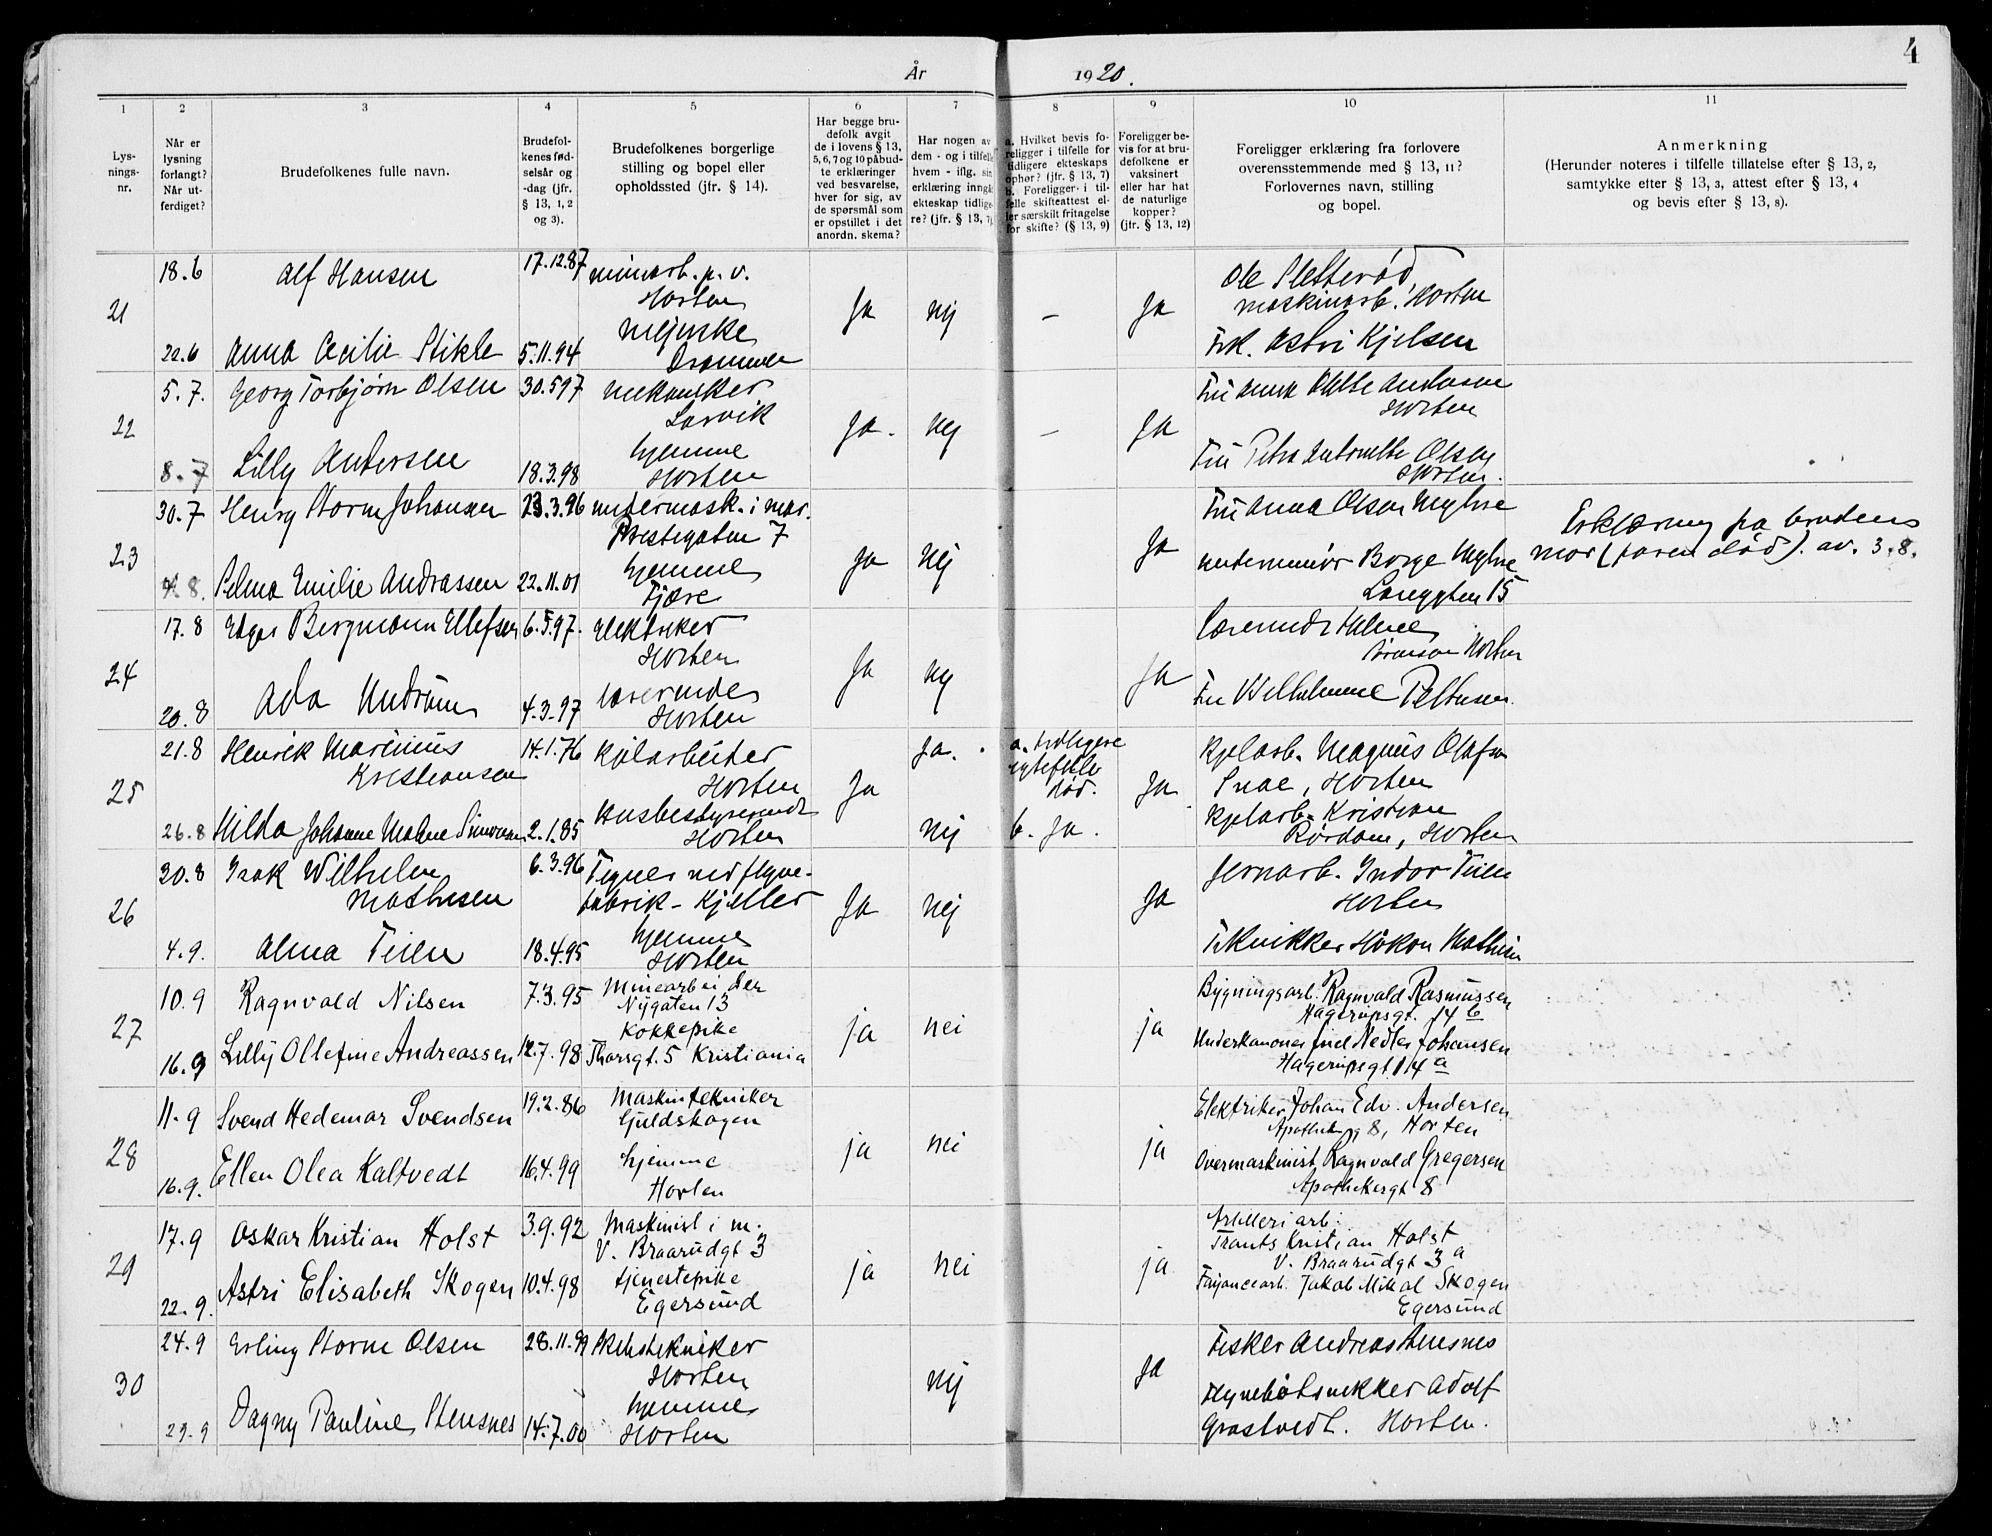 4
År 1920.
1 2 3 4 5 6 7 8 9 10 11
Lys-
nings-
nr.
Når er
lysning
forlangt?
Når ut-
ferdiget?
Brudefolkenes fulle navn.
Brudefol-
kenes fød-
selsår og
-dag (jfr.
§ 13, 1, 2
og 3).
Brudefolkenes borgerlige
stilling og bopel eller
opholdssted (jfr. § 14).
Har begge bru-
defolk avgit
de i lovens § 13,
5, 6, 7 og 10 påbud-
te erklæringer
ved besvarelse,
hver for sig, av
de spørsmål som
er opstillet i det
anordn. skema?
Har nogen av
dem - og i tilfelle
hvem - iflg. sin
erklæring inngåt
ekteskap tidlige-
re? (jfr. § 13, 7)
a. Hvilket bevis fo-
religger i tilfelle for
tidligere ekteskaps
ophør? (jfr. § 13, 7)
b. Foreligger i til-
felle skifteattest el-
ler særskilt fritagelse
for skifte? (§ 13, 9)
Foreligger be-
vis for at bru-
defolkene er
vaksinert
eller har hat
de naturlige
kopper?
(jfr. § 13, 12)
Foreligger erklæring fra forlovere
overensstemmende med § 13, 11?
Forlovernes navn, stilling
og bopel.
Anmerkning
(Herunder noteres i tilfelle tillatelse efter § 13, 2,
samtykke efter § 13, 3, attest efter § 13, 4
og bevis efter § 13, 8).
21
18.6 Alf Hansen 17.12.87 minarb. p. v.
Horten
22.6 Anna Cecilie Stikle 5.11.94 mejerske
Drammen
Ja nej – Ja
Ole Sletterød,
maskinarb. Horten
Frk. Astri Kjelsen
22
5.7. Georg Torbjørn Olsen 30.5 97 mekaniker
Larvik
8.7 Lilly Andersen 18.3.98 hjemme
Horten
Ja. nej – Ja
Fru Anna Andersen
Horten
Fru Petra Antonette Olsen
Horten.
23
30.7 Henry Storm Johansen 23.3.96 undermask. i mar.
Prestegaten 7
4.8. Selma Emilie Andreassen 22.11.01 hjemme
Fjære
Ja Nej Ja
Fru Anna Olsen Myhre
underminør Borge Myhre
Langgten 15
Erklæring fra brudens
mor (faren død). av. 3.8.
24
17.8 Edgar Bergmann Ellefsen 6.5.97. Elektriker
Horten
20.8 Ada Undrum 4.3.97 lærerinde
Horten
Ja nej Ja
Lærerinde
Horten
Fru Wilhelmine Pettersen.
25
21.8 Henrik Marinius
Kristiansen 14.1.76 kjelarbeider
Horten
26.8 Hilda Johanne Malene Simonsen 2.1.85 Husbestyrerinde
Horten
Ja Ja. nej
a. tidligere
egtefelle
død.
b. Ja.
Ja
Kjelarb. Magnus Olafsen
Snae, Horten
Kjelarb. Kristian
Rørdam, Horten
26
30.8 Isak Wilhelm
Mathisen 6.3.96 Tegner ved flyve-
fabrik - Kjeller
4.9. Alma Teien 18.4.95 hjemme
Horten
Ja nej Ja
Jernarb. Indor Teien
Horten
Tekniker Håkon Mathisen
27
10.9 Ragnvald Nilsen 7.3.95 Minearbeider
Nygaten 13
16.9 Lilly Ollefine Andreassen 12.7.98 Kokkepike
Thorsgt. 5 Kristiania
ja nei ja
Bygningsarb. Ragnvald Rasmussen
Hagerupsgt. 14 b
Underkanoner Nedler Johansen
Hagerupsgt. 14 a
28
11.9 Svend Hedemar Svendsen 19.2.86 Maskintekniker
Guldskogen
16.9. Ellen Olea Kaltvedt 16.4.99 hjemme
Horten
ja nei ja
Elektriker Johan Edv. Andersen
8, Horten
Overmaskinist Ragnvald Gregersen
Apothekergt 8
29
17.9 Oskar Kristian Holst 3.9.92 Maskinist i m.
V. Braarudgt 3
22.9. Astri Elisabeth Skogen 10.4.98 tjenestepike
Egersund
ja nei ja
Artilleriarb.
Frants Kristian Holst
V. Braarudgt 3 a
Fajancearb. Jakob Mikal Skogen
Egersund
30
24.9 Erling Storm Olsen 28.11.99 Skibstekniker
Horten
29.9 Dagny Pauline Stensnes 14.7.00 hjemme
Horten
nej Ja
Fisker Andreas Stensnes
Flyvebåtsnekker Adolf
Grostvedt. Horten.